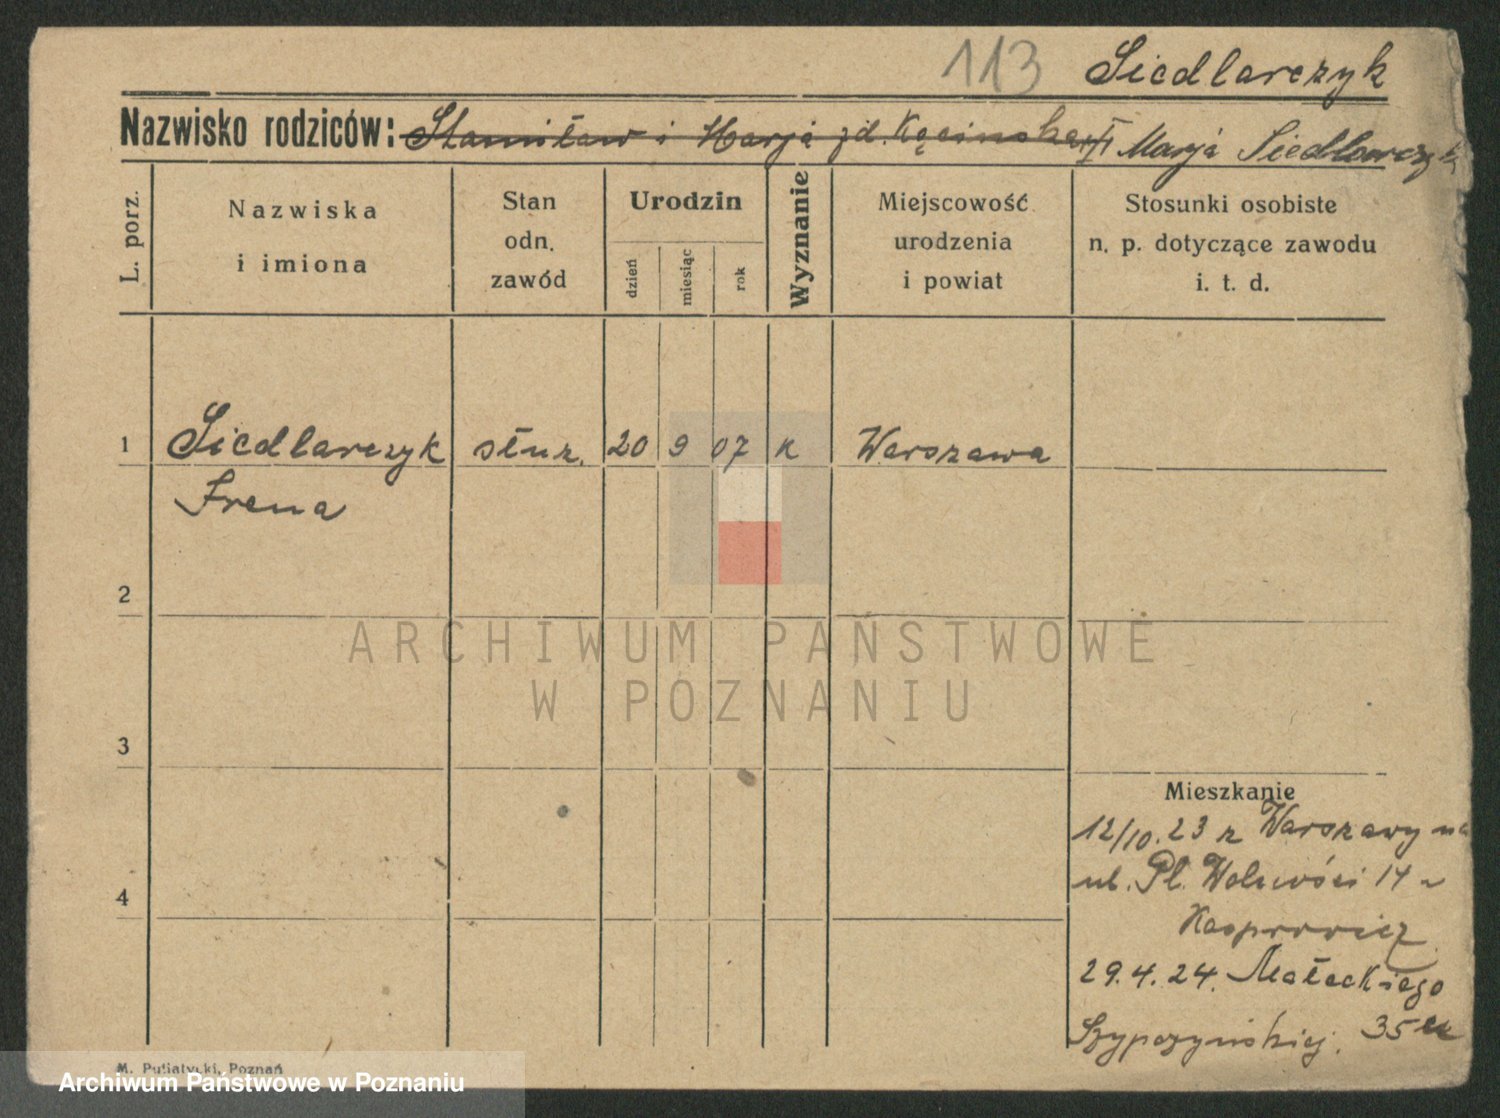 113 Siedlarczyk
Nazwisko rodziców: Stanisław i Marja zd. Kęcinska Marja Siedlarczyk
L. porz.
Nazwiska
i imiona
Stan
odn.
zawód
Urodzin
dzień
miesiąc
rok
Wyznanie
Miejscowość
urodzenia
i powiat
Stosunki osobiste
n. p. dotyczące zawodu
i. t. d.
1 Siedlarczyk służ. 20 9 07 k Warszawa
Irena
2
ARCHIWUM PAŃSTWOWE
W POZNANIU
3
Mieszkanie
12/10.23 z Warszawy na
ul. Pl. Wolności 14 u
4
Kasprowicz
29.4.24. Małeckiego
35 u
Szypczyńskiej.
M. Putiatycki, Poznań
Archiwum Państwowe w Poznaniu